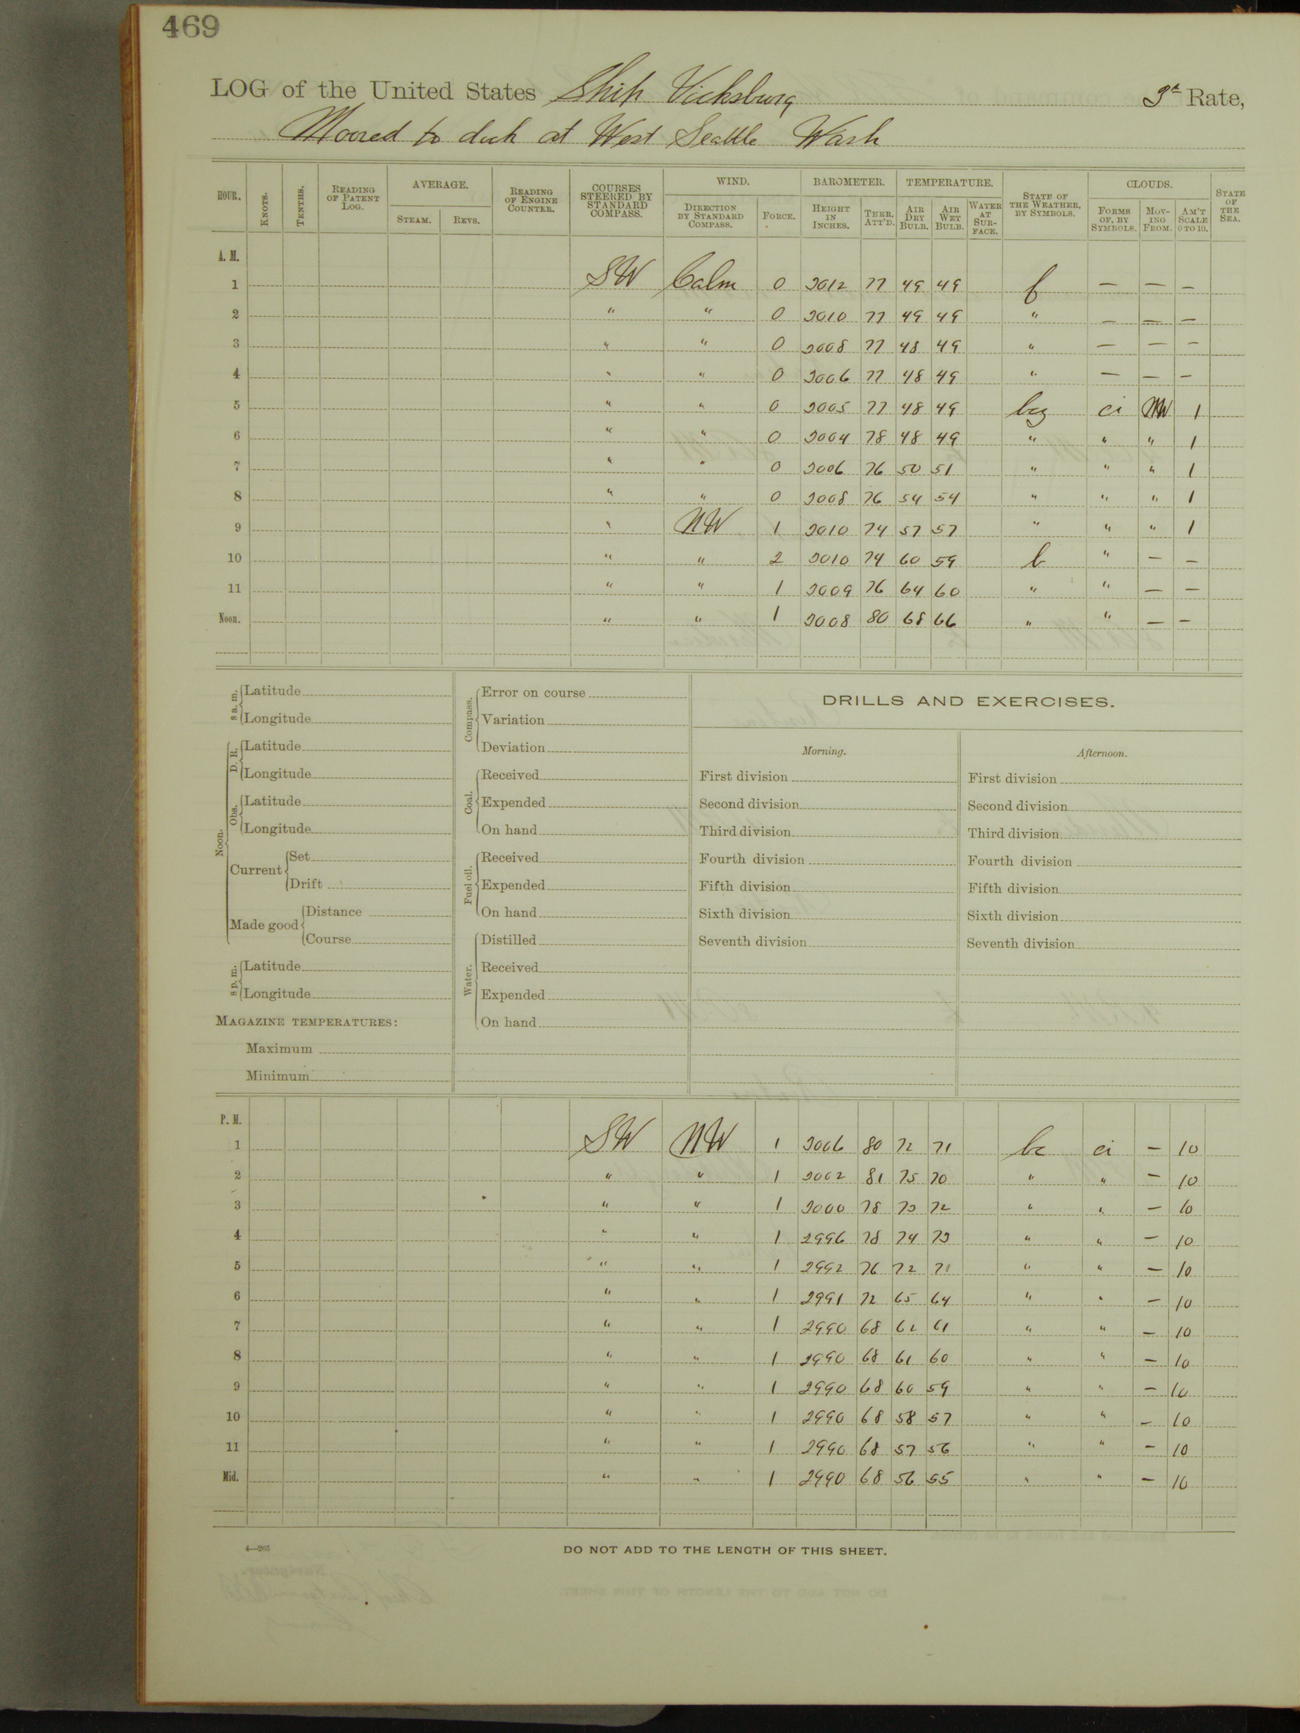 469
LOG of the United States Ship Vicksburg 3d Rate,
Moored to dock at West Seattle Wash
HOUR. KNOTS. TENTHS. READING OF PATENT LOG. AVERAGE. STEAM. REVS. READING OF ENGINE COUNTER. COURSES STEERED BY STANDARD COMPASS. WIND. DIRECTION BY STANDARD COMPASS. FORCE. BAROMETER. HEIGHT IN INCHES. THER. ATT'D. TEMPERATURE. AIR DRY BULB. AIR WET BULB. WATER AT SURFACE. STATE OF THE WEATHER, BY SYMBOLS. CLOUDS. FORMS OF, BY SYMBOLS. MOVING FROM. AM'T SCALE 0 TO 10. STATE OF THE SEA.
A. M.
1 SW Calm 0 3012 77 49 49 f — — —
2 " " 0 3010 77 49 49 " — — —
3 " " 0 3008 77 48 49 " — — —
4 " " 0 3006 77 48 49 " — — —
5 " " 0 3005 77 48 49 bcg ci NW 1
6 " " 0 3004 78 48 49 " " " 1
7 " " 0 3006 76 50 51 " " " 1
8 " " 0 3008 76 54 54 " " " 1
9 " NW 1 3010 74 57 57 " " " 1
10 " " 2 3010 74 60 59 b " — —
11 " " 1 3009 76 64 60 " " — —
Noon. " " 1 3008 80 68 66 " " — —
8 a. m. Latitude
Longitude
Noon. D. R. Latitude
Longitude
Obs. Latitude
Longitude
Current Set
Drift
Made good Distance
Course
8 p. m. Latitude
Longitude
MAGAZINE TEMPERATURES:
Maximum
Minimum
Compass. Error on course
Variation
Deviation
Coal. Received
Expended
On hand
Fuel oil. Received
Expended
On hand
Water. Distilled
Received
Expended
On hand
DRILLS AND EXERCISES.
Morning.
First division
Second division
Third division
Fourth division
Fifth division
Sixth division
Seventh division
Afternoon.
First division
Second division
Third division
Fourth division
Fifth division
Sixth division
Seventh division
P. M.
1 SW NW 1 3006 80 72 71 bc ci — 10
2 " " 1 3002 81 75 70 " " — 10
3 " " 1 3000 78 73 72 " " — 10
4 " " 1 2996 78 74 73 " " — 10
5 " " 1 2992 76 72 71 " " — 10
6 " " 1 2991 72 65 64 " " — 10
7 " " 1 2990 68 62 61 " " — 10
8 " " 1 2990 68 61 60 " " — 10
9 " " 1 2990 68 60 59 " " — 10
10 " " 1 2990 68 58 57 " " — 10
11 " " 1 2990 68 57 56 " " — 10
Mid. " " 1 2990 68 56 55 " " — 10
4—265
DO NOT ADD TO THE LENGTH OF THIS SHEET.